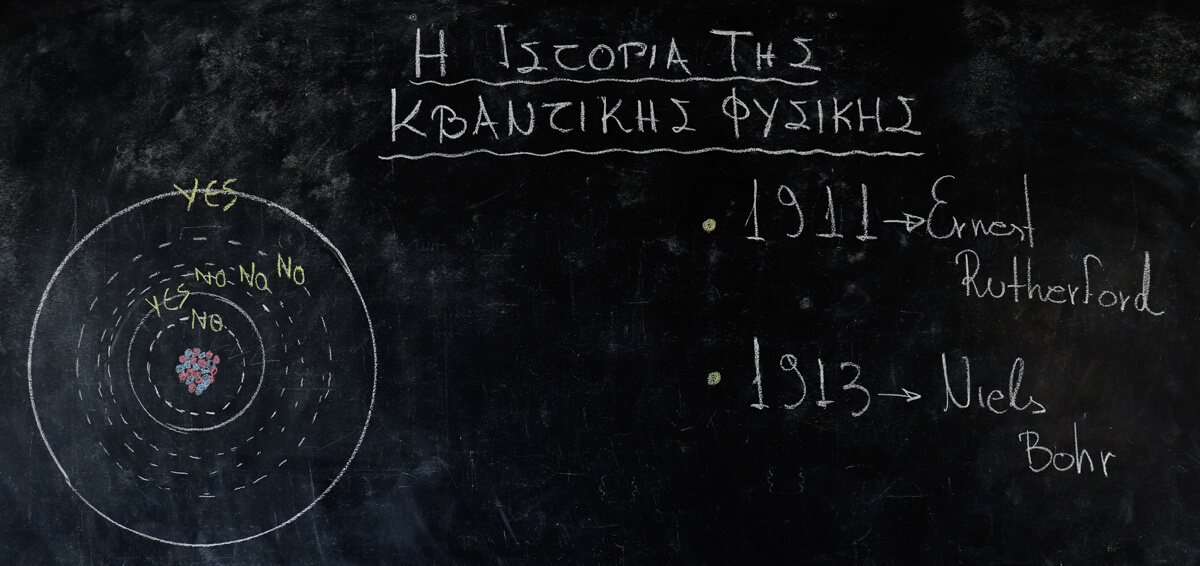 Η ΙΣΤΟΡΙΑ ΤΗΣ
ΚΒΑΝΤΙΚΗΣ ΦΥΣΙΚΗΣ
YES
NO NO NO
YES
NO
• 1911 → Ernest
Rutherford
• 1913 → Niels
Bohr